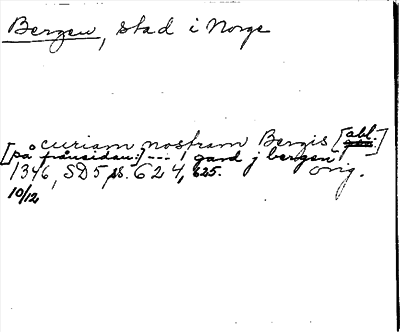 Bergen, stad i Norge
curiam nostram Bergis [abl.]
[på frånsidan:] --- 1 gard j bergen
1346, SD 5 ss. 624, 625. orig.
10/12